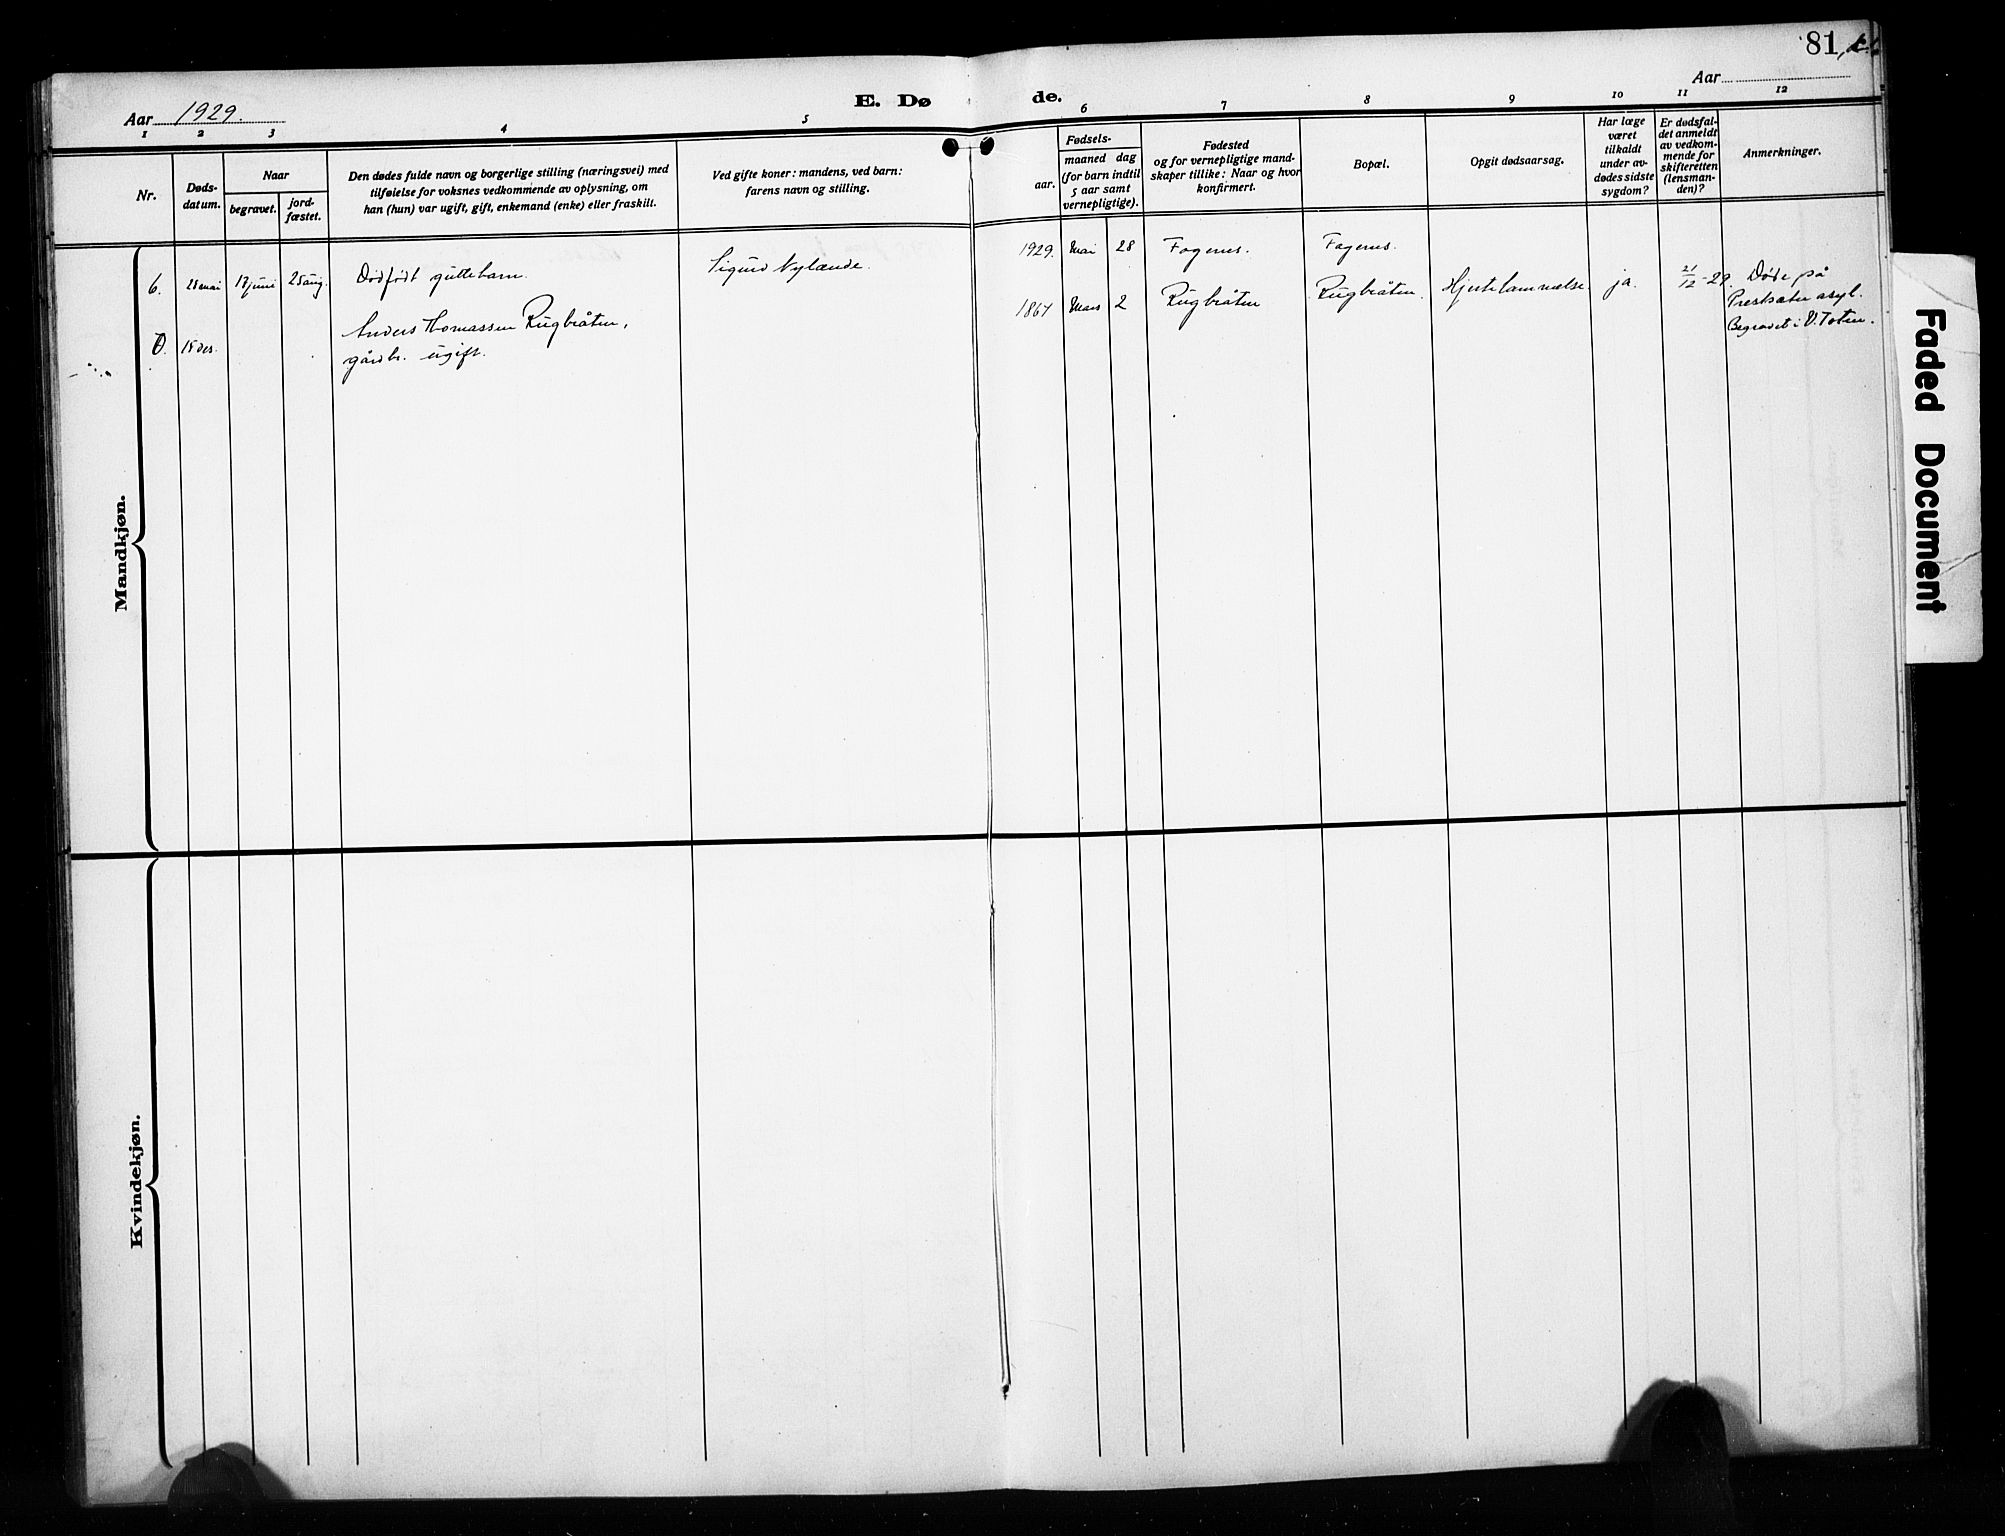 81
Aar 1929.
E. Dø de.
Aar
1 2 3 4 5 6 7 8 9 10 11 12
Nr.
Døds-
datum.
Naar
begravet.
jord-
fæstet.
Den dødes fulde navn og borgerlige stilling (næringsvei) med
tilføielse for voksnes vedkommende av oplysning, om
han (hun) var ugift, gift, enkemand (enke) eller fraskilt.
Ved gifte koner: mandens, ved barn:
farens navn og stilling.
Fødsels-
aar.
maaned dag
(for barn indtil
5 aar samt
vernepligtige).
Fødested
og for vernepligtige mand-
skaper tillike: Naar og hvor
konfirmert.
Bopæl.
Opgit dødsaarsag.
Har læge
været
tilkaldt
under av-
dødes sidste
sygdom?
Er dødsfal-
det anmeldt
av vedkom-
mende for
skifteretten
(lensman-
den)?
Anmerkninger.
Mandkjøn.
6. 28 mai 13 juni 25 aug. Dødfødt guttebarn. Sigurd Nylænde. 1929. Mai 28 Fagernes. Fagernes.
15 des. Anders Thomassen Rugbråten,
gårdbr. ugift.
1867 Mars 2 Rugbråten Rugbråten. Hjertelammelse. ja. 21/12-29. Døde på
Prestsæter asyl.
Begravet i V. Toten.
Kvindekjøn.
Faded Document